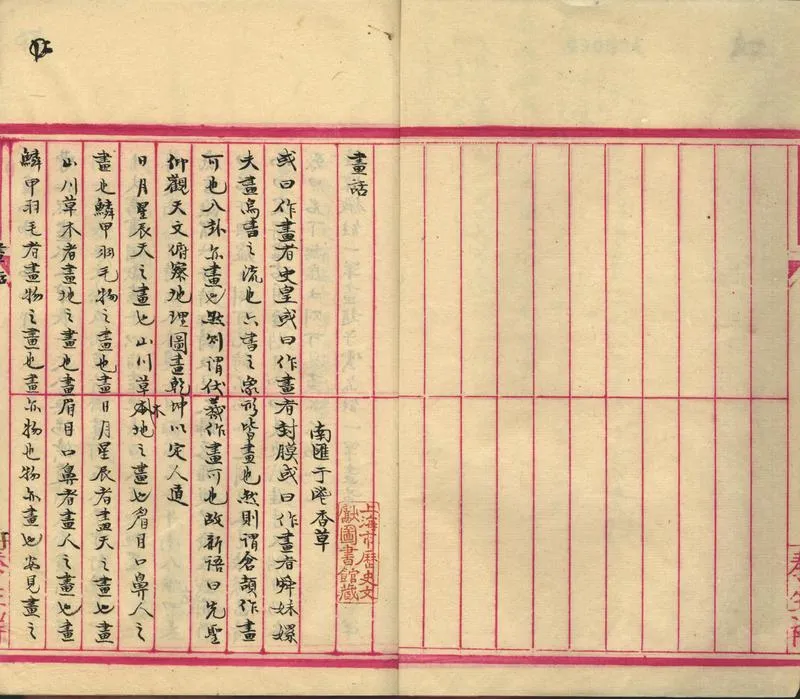 畫話
南匯于鬯香草
上海市歷史文
獻圖書館藏
或曰作畫者史皇或曰作畫者封膜或曰作畫者舜妹嫘
夫畫為書之流也六書之象形皆畫也然則謂倉頡作畫
可也八卦亦畫也然則謂伏羲作畫可也故新語曰先聖
仰觀天文俯察地理圖畫乾坤以定人道
日月星辰天之畫也山川草木地之畫也眉目口鼻人之
畫也鱗甲羽毛物之畫也畫日月星辰者畫天之畫也畫
山川草木者畫地之畫也畫眉目口鼻者畫人之畫也畫
鱗甲羽毛者畫物之畫也畫亦物也物亦畫也安見畫之